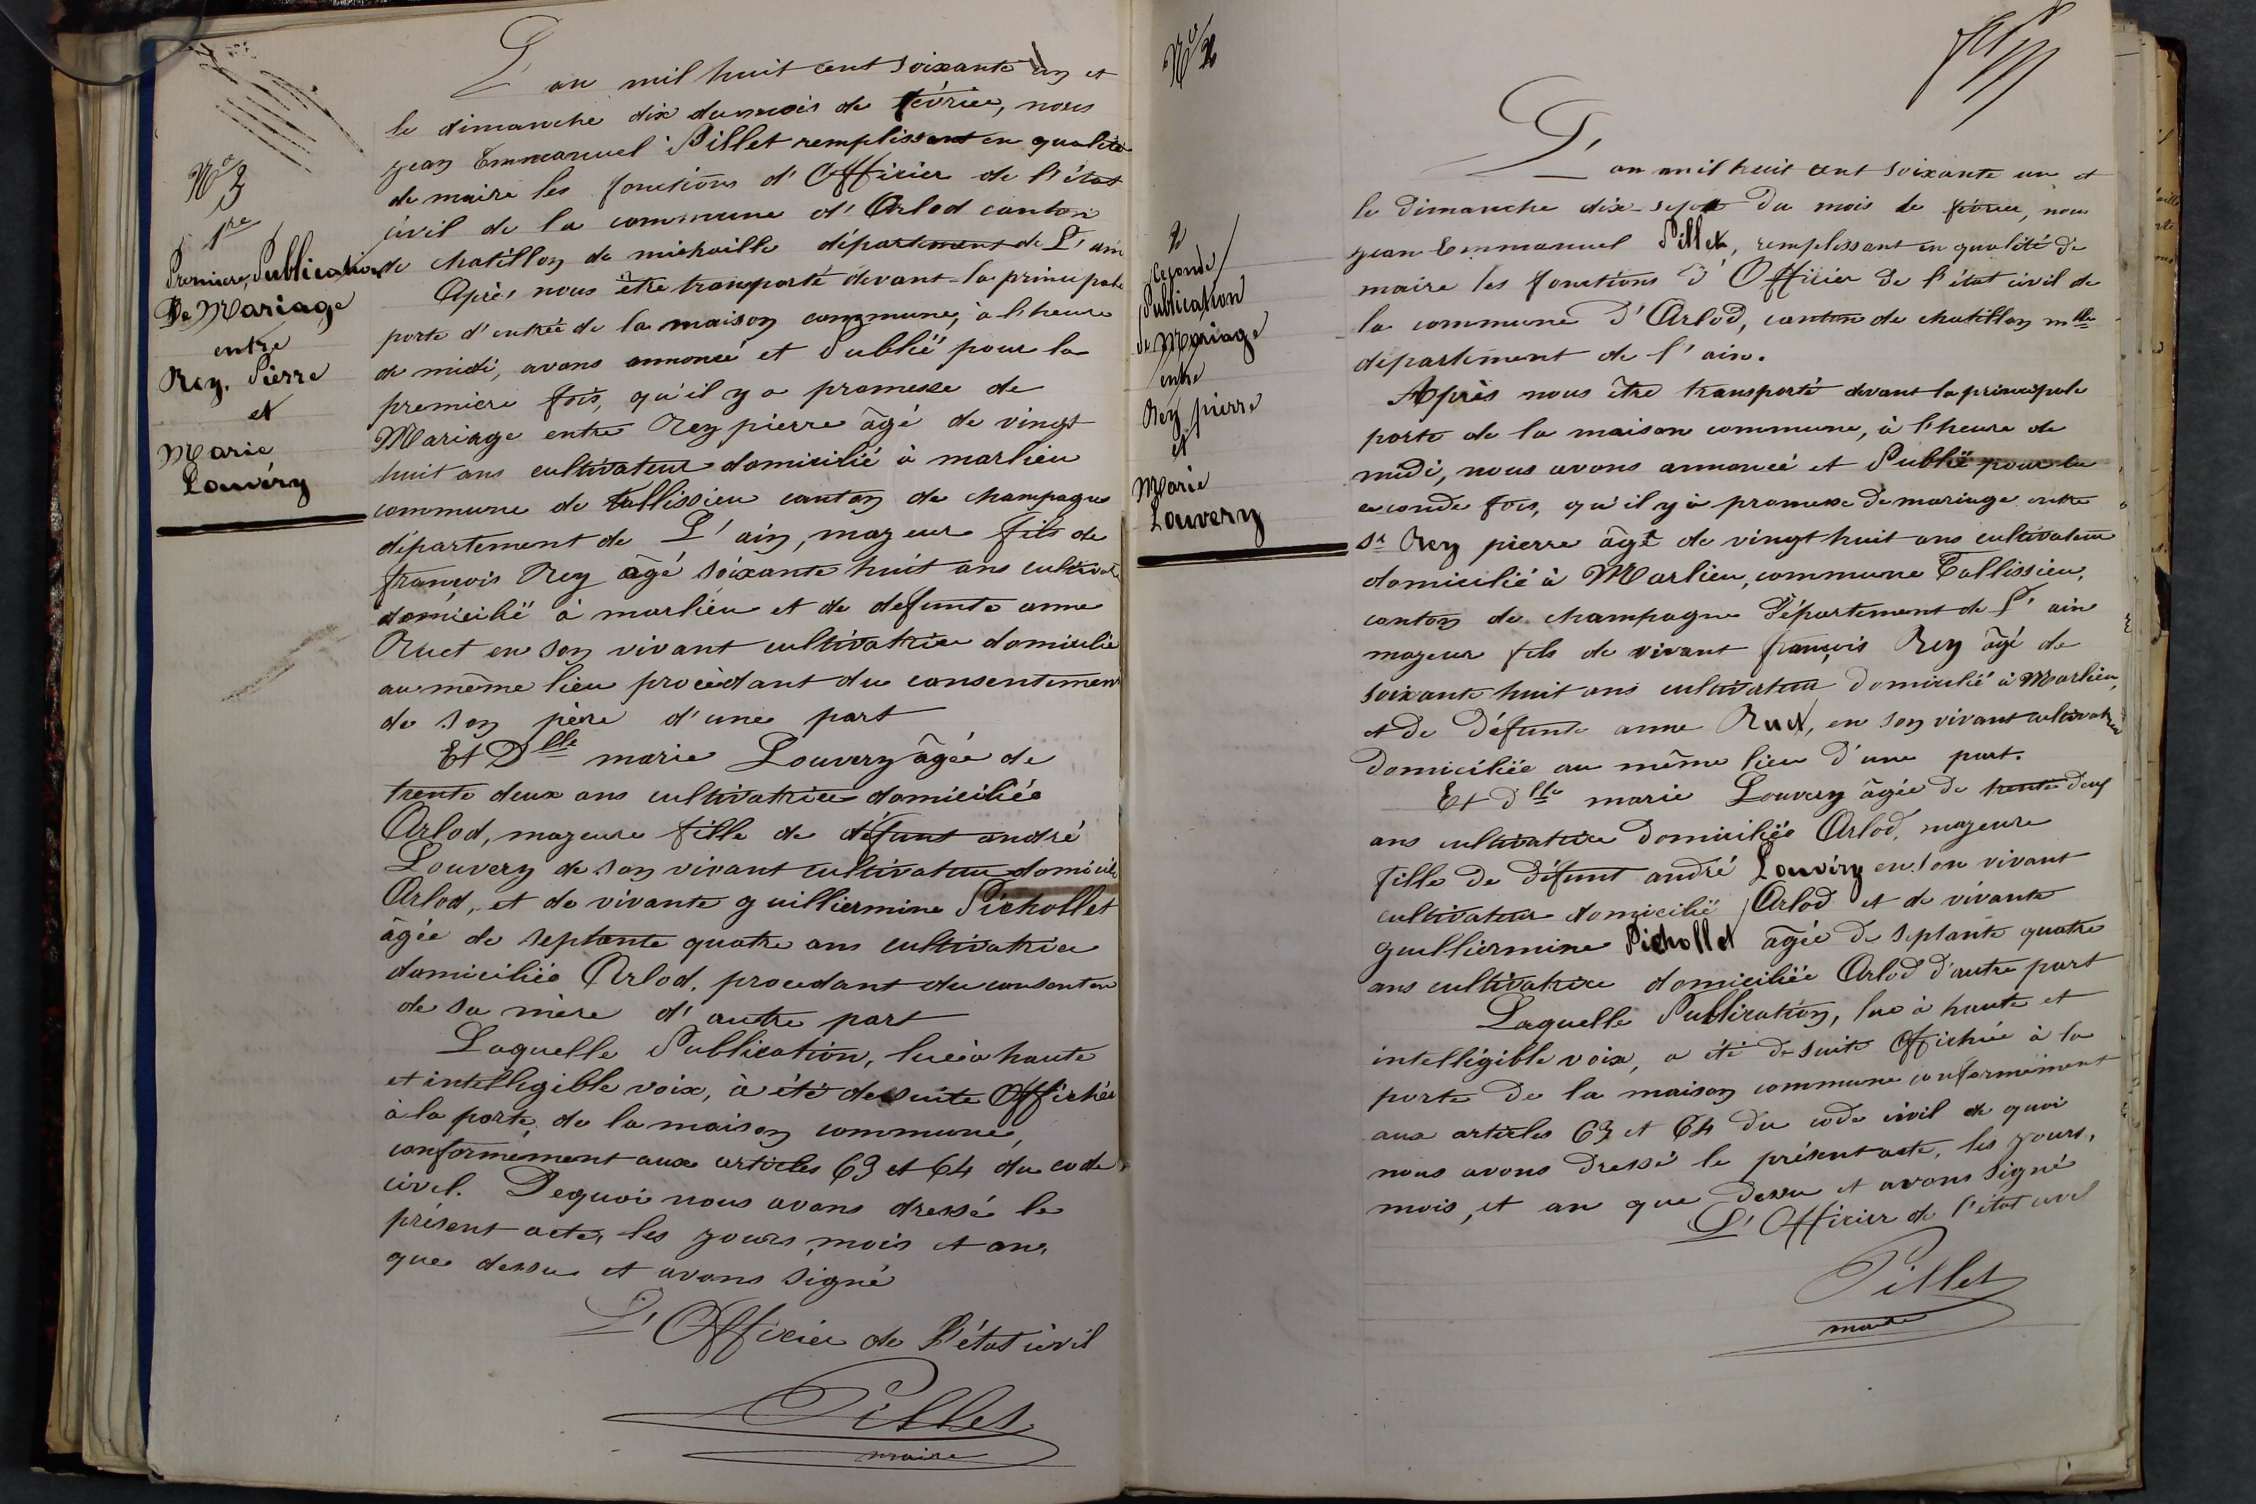 L'an mil huit cent soixante un et
le dimanche dix du mois de février, nous
jean Emmanuel Pillet remplissant en qualité
de maire les fonctions d'Officier de l'état
civil de la commune d'Arlod canton
de chatillon de michaille département de L'ain
Après nous être transporté devant la principale
porte d'entrée de la maison commune, à l'heure
de midi, avons annoncé et Publié pour la
premiere fois, qu'il y a promesse de
Mariage entre Rey pierre âgé de vingt
huit ans cultivateur domicilié à marlieu
commune de tallissieu canton de champagne
département de L'ain, majeur fils de
françois Rey âgé soixante huit ans cultivat
domicilié à marlieu et de defunte anne
Ruet en son vivant cultivatrice domicilié
au même lieu procèdant du consentement
de son père d'une part
Et Dlle marie Louvery âgée de
trente deux ans cultivatrice domiciliée
Arlod, majeure fille de défunt andré
Louvery de son vivant cultivateur domicilié
Arlod, et de vivante guilliermine Pichollet
âgée de septante quatre ans cultivatrice
domiciliée Arlod, procedant du consentem
de sa mère d'autre part
Laquelle Publication, lue à haute
et intelligible voix, à été de suite Affichée
à la porte de la maison commune,
conformément aux articles 63 et 64 du code
civil. De quoi nous avons dressé le
présent acte, les jours, mois et an,
que dessu et avons signé
L'Officier de l'état civil
Pillet
maire
No 3
1re
Premiere Publication
De Mariage
entre
Rey. Pierre
et
Marie
Louvéry
No
L'an mil huit cent soixante un et
le dimanche dix-sept du mois de février, nous
jean Emmanuel Pillet, remplissant en qualité de
maire les fonctions d'Officier de l'état civil de
la commune d'Arlod, canton de chatillon mlle
département de l'ain.
Après nous être transporté devant la principale
porte de la maison commune, à l'heure de
midi, nous avons annoncé et Publié pour la
seconde fois, qu'il y à promesse de mariage entre
Sr Rey pierre âgé de vingt huit ans cultivateur
domicilié à Marlieu, commune Tallissieu,
canton de champagne département de L'ain
majeur fils de vivant françois Rey âgé de
soixante huit ans cultivateur domicilié à Marlieu,
et de défunte anne Ruet, en son vivant cultivatrice
domiciliée au même lieu d'une part.
Et Dlle marie Louvery âgée de trente deux
ans cultivatrice domiciliée Arlod, majeure
fille de défunt andré Louvéry en son vivant
cultivateur domicilié Arlod et de vivante
guilliermine Pichollet âgée de septante quatre
ans cultivatrice domiciliée Arlod d'autre part
Laquelle Publication, lue à haute et
intelligible voix, a été de suite Affichée à la
porte de la maison commune conformément
aux articles 63 et 64 du code civil de quoi
nous avons dressé le présent acte, les jours,
mois, et an que dessu et avons signé
L'Officier de l'état civil
Pillet
maire
seconde
Publication
de Mariage
entre
Rey pierre
et
Marie
Louvery